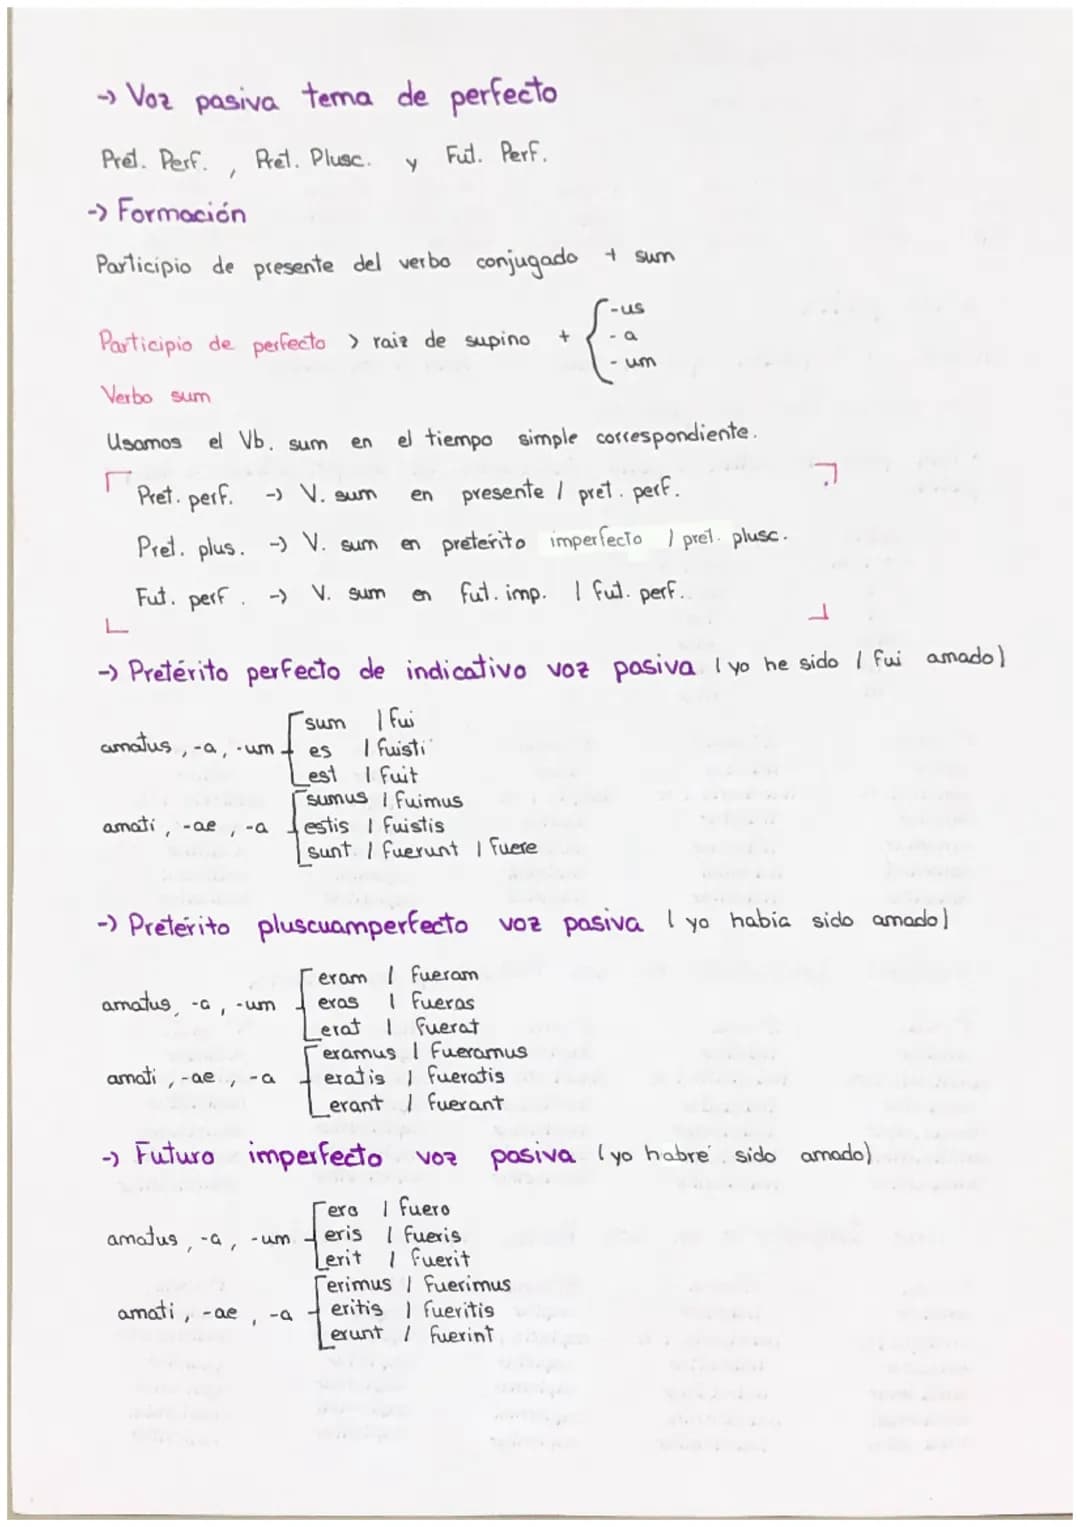 -> Voz pasiva tema de perfecto
Pret. Perf. , Pret. Plusc. y Fut. Perf.
-> Formación
Participio de presente del verbo conjugado + sum
Participio de perfecto > raiz de supino + { -us
- a
- um
Verbo sum
Usamos el Vb. sum en el tiempo simple correspondiente.
Pret. perf. -> V. sum en presente / pret. perf.
Pret. plus. -> V. sum en preterito imperfecto / pret. plusc.
Fut. perf. -> V. sum en fut. imp. / fut. perf.
-> Pretérito perfecto de indicativo voz pasiva (yo he sido / fui amado)
sum / fui
amatus, -a, -um es / fuisti
est / fuit
sumus / fuimus
amati, -ae, -a estis / fuistis
sunt / fuerunt / fuere
-> Pretérito pluscuamperfecto voz pasiva (yo había sido amado)
eram / fueram
amatus, -a, -um eras / fueras
erat / fuerat
eramus / fueramus
amati, -ae, -a eratis / fueratis
erant / fuerant
-> Futuro imperfecto voz pasiva (yo habré sido amado)
ero / fuero
amatus, -a, -um eris / fueris
erit / fuerit
erimus / fuerimus
amati, -ae, -a eritis / fueritis
erunt / fuerint